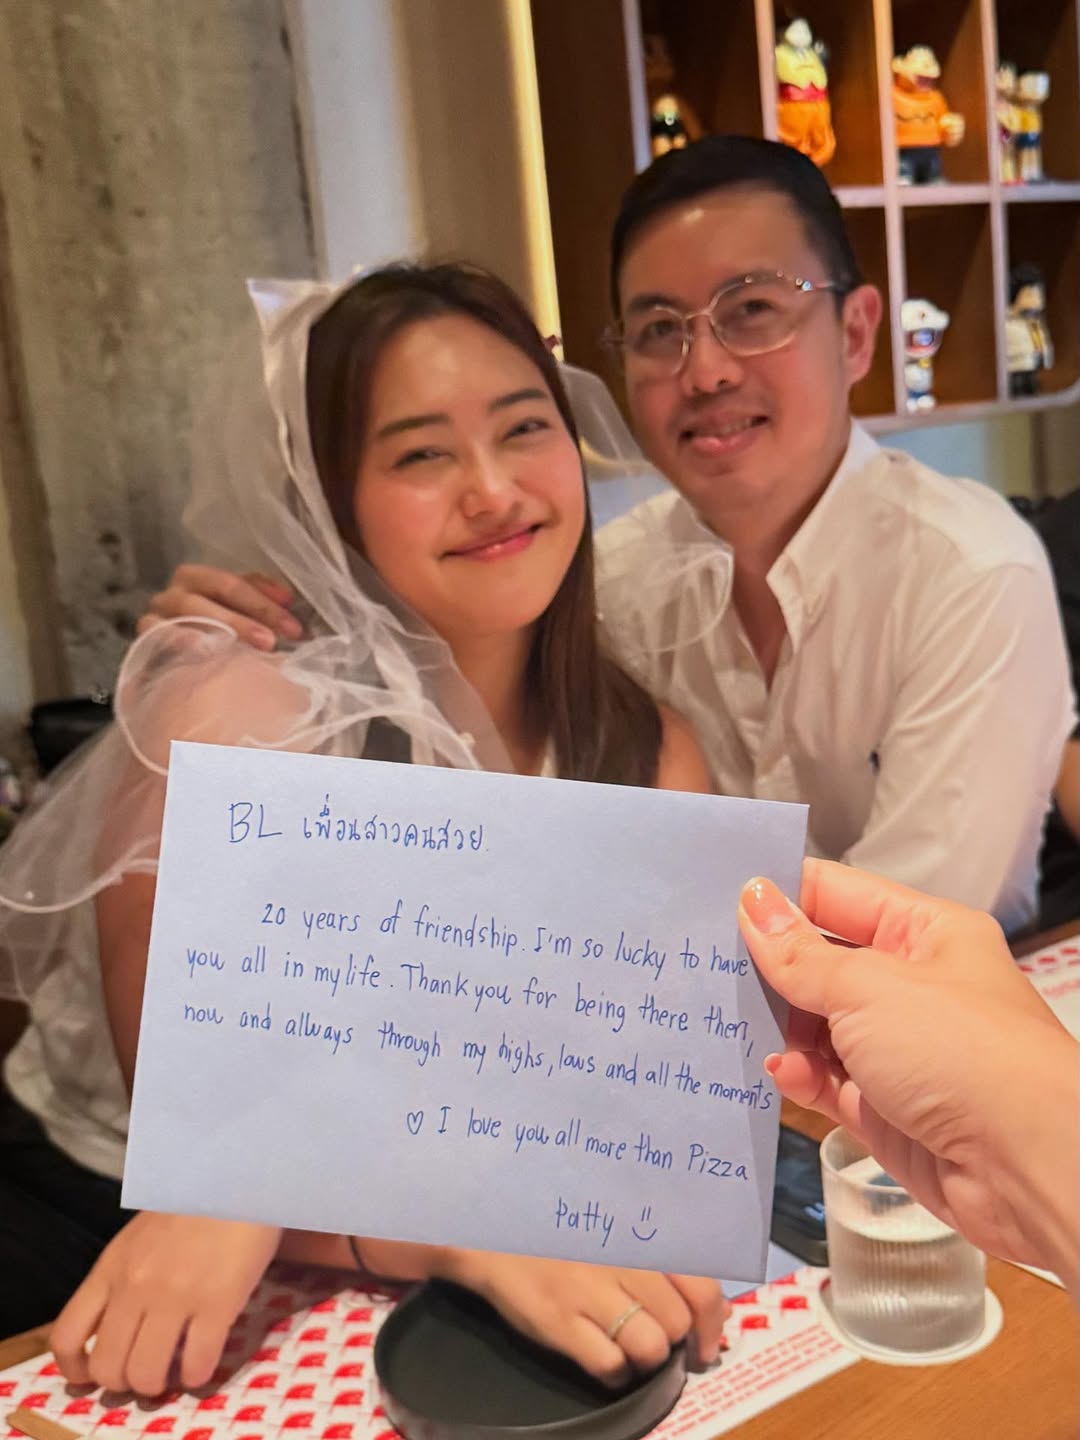 BL เพื่อนสาวคนสวย.
20 years of friendship. I'm so lucky to have
you all in my life. Thank you for being there then,
now and always through my highs, lows and all the moments
♡ I love you all more than Pizza
Patty